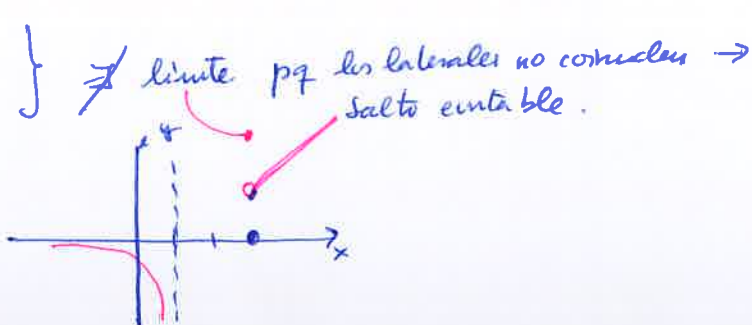 } ∄ límite pq los laterales no coinciden →
Salto evitable.
y
x